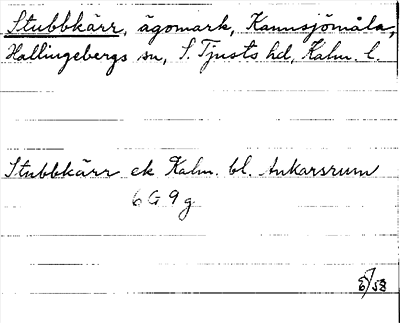 Stubbkärr, ägomark, Kannsjömåla,
Hallingebergs sn, S. Tjusts hd, Kalm. l.
Stubbkärr ek Kalm. bl. Ankarsrum
6 G 9 g
/58